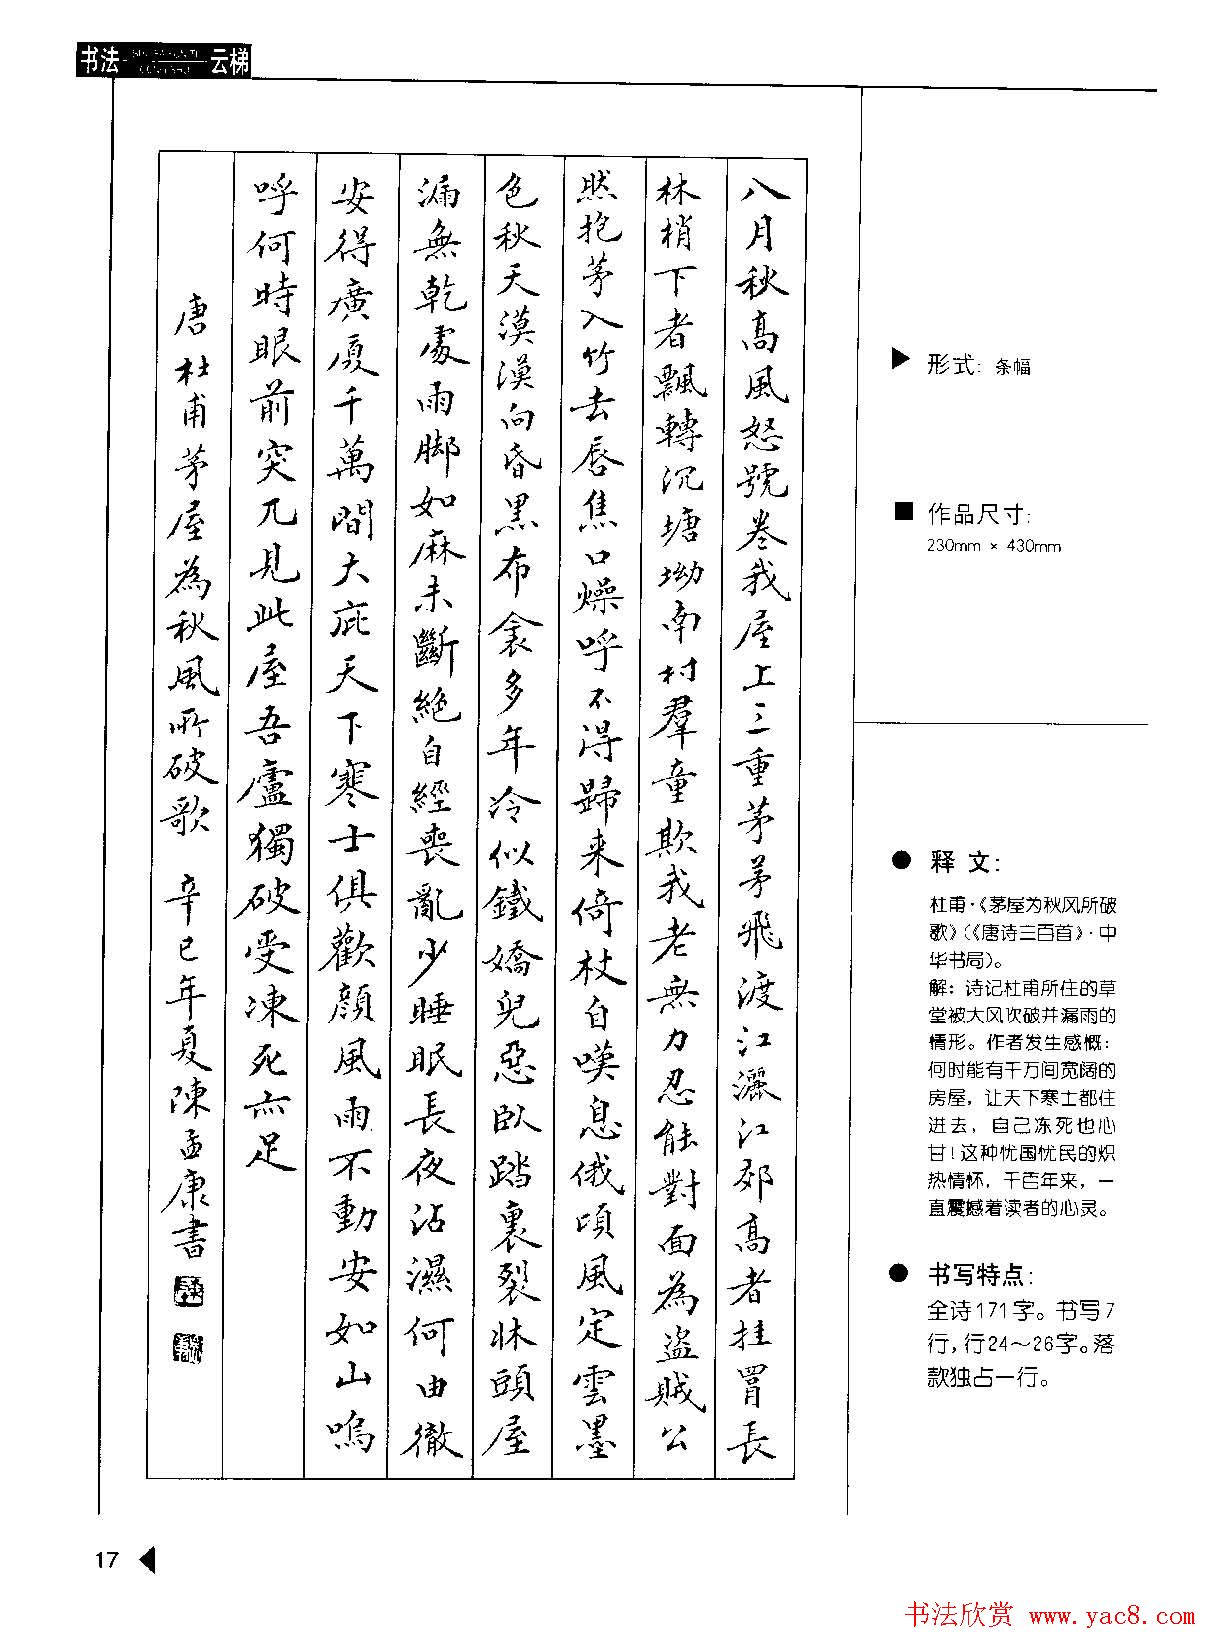 书法 云梯
八月秋高風怒號卷我屋上三重茅茅飛渡江灑江郊高者挂罥長
林梢下者飄轉沉塘坳南村羣童欺我老無力忍能對面為盜賊公
然抱茅入竹去唇焦口燥呼不得歸来倚杖自嘆息俄頃風定雲墨
色秋天漠漠向昏黑布衾多年冷似鐵嬌兒惡臥踏裏裂牀頭屋
漏無乾處雨脚如麻未斷絕自經喪亂少睡眠長夜沾濕何由徹
安得廣厦千萬間大庇天下寒士俱歡顏風雨不動安如山嗚
呼何時眼前突兀見此屋吾廬獨破受凍死亦足
唐杜甫茅屋為秋風所破歌 辛巳年夏陳孟康書
▶ 形式: 条幅
■ 作品尺寸:
230mm × 430mm
● 释 文:
杜甫·《茅屋为秋风所破
歌》(《唐诗三百首》·中
华书局)。
解: 诗记杜甫所住的草
堂被大风吹破并漏雨的
情形。作者发生感慨:
何时能有千万间宽阔的
房屋, 让天下寒士都住
进去, 自己冻死也心
甘!这种忧国忧民的炽
热情怀, 千百年来, 一
直震撼着读者的心灵。
● 书写特点:
全诗171字。书写7
行,行24～26字。落
款独占一行。
17
书法欣赏 www.yac8.com